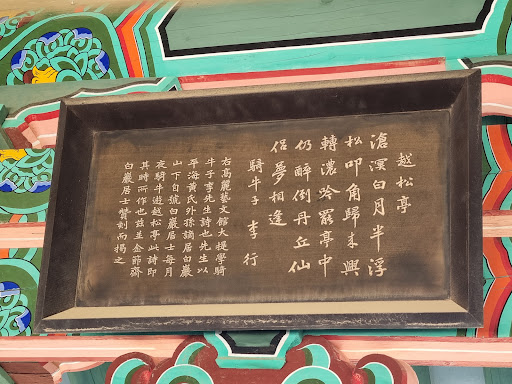 越松亭
滄溟白月半浮
松叩角歸來興
轉濃吟罷亭中
仍醉倒丹丘仙
侶夢相逢
騎牛子 李行
右高麗藝文館大提學騎
牛子李先生詩也先生以
平海黃氏外孫謫居白巖
山下自號白巖居士每月
夜騎牛遊越松亭此詩即
其時所作也玆並金節齋
白巖居士贊刻而揭之